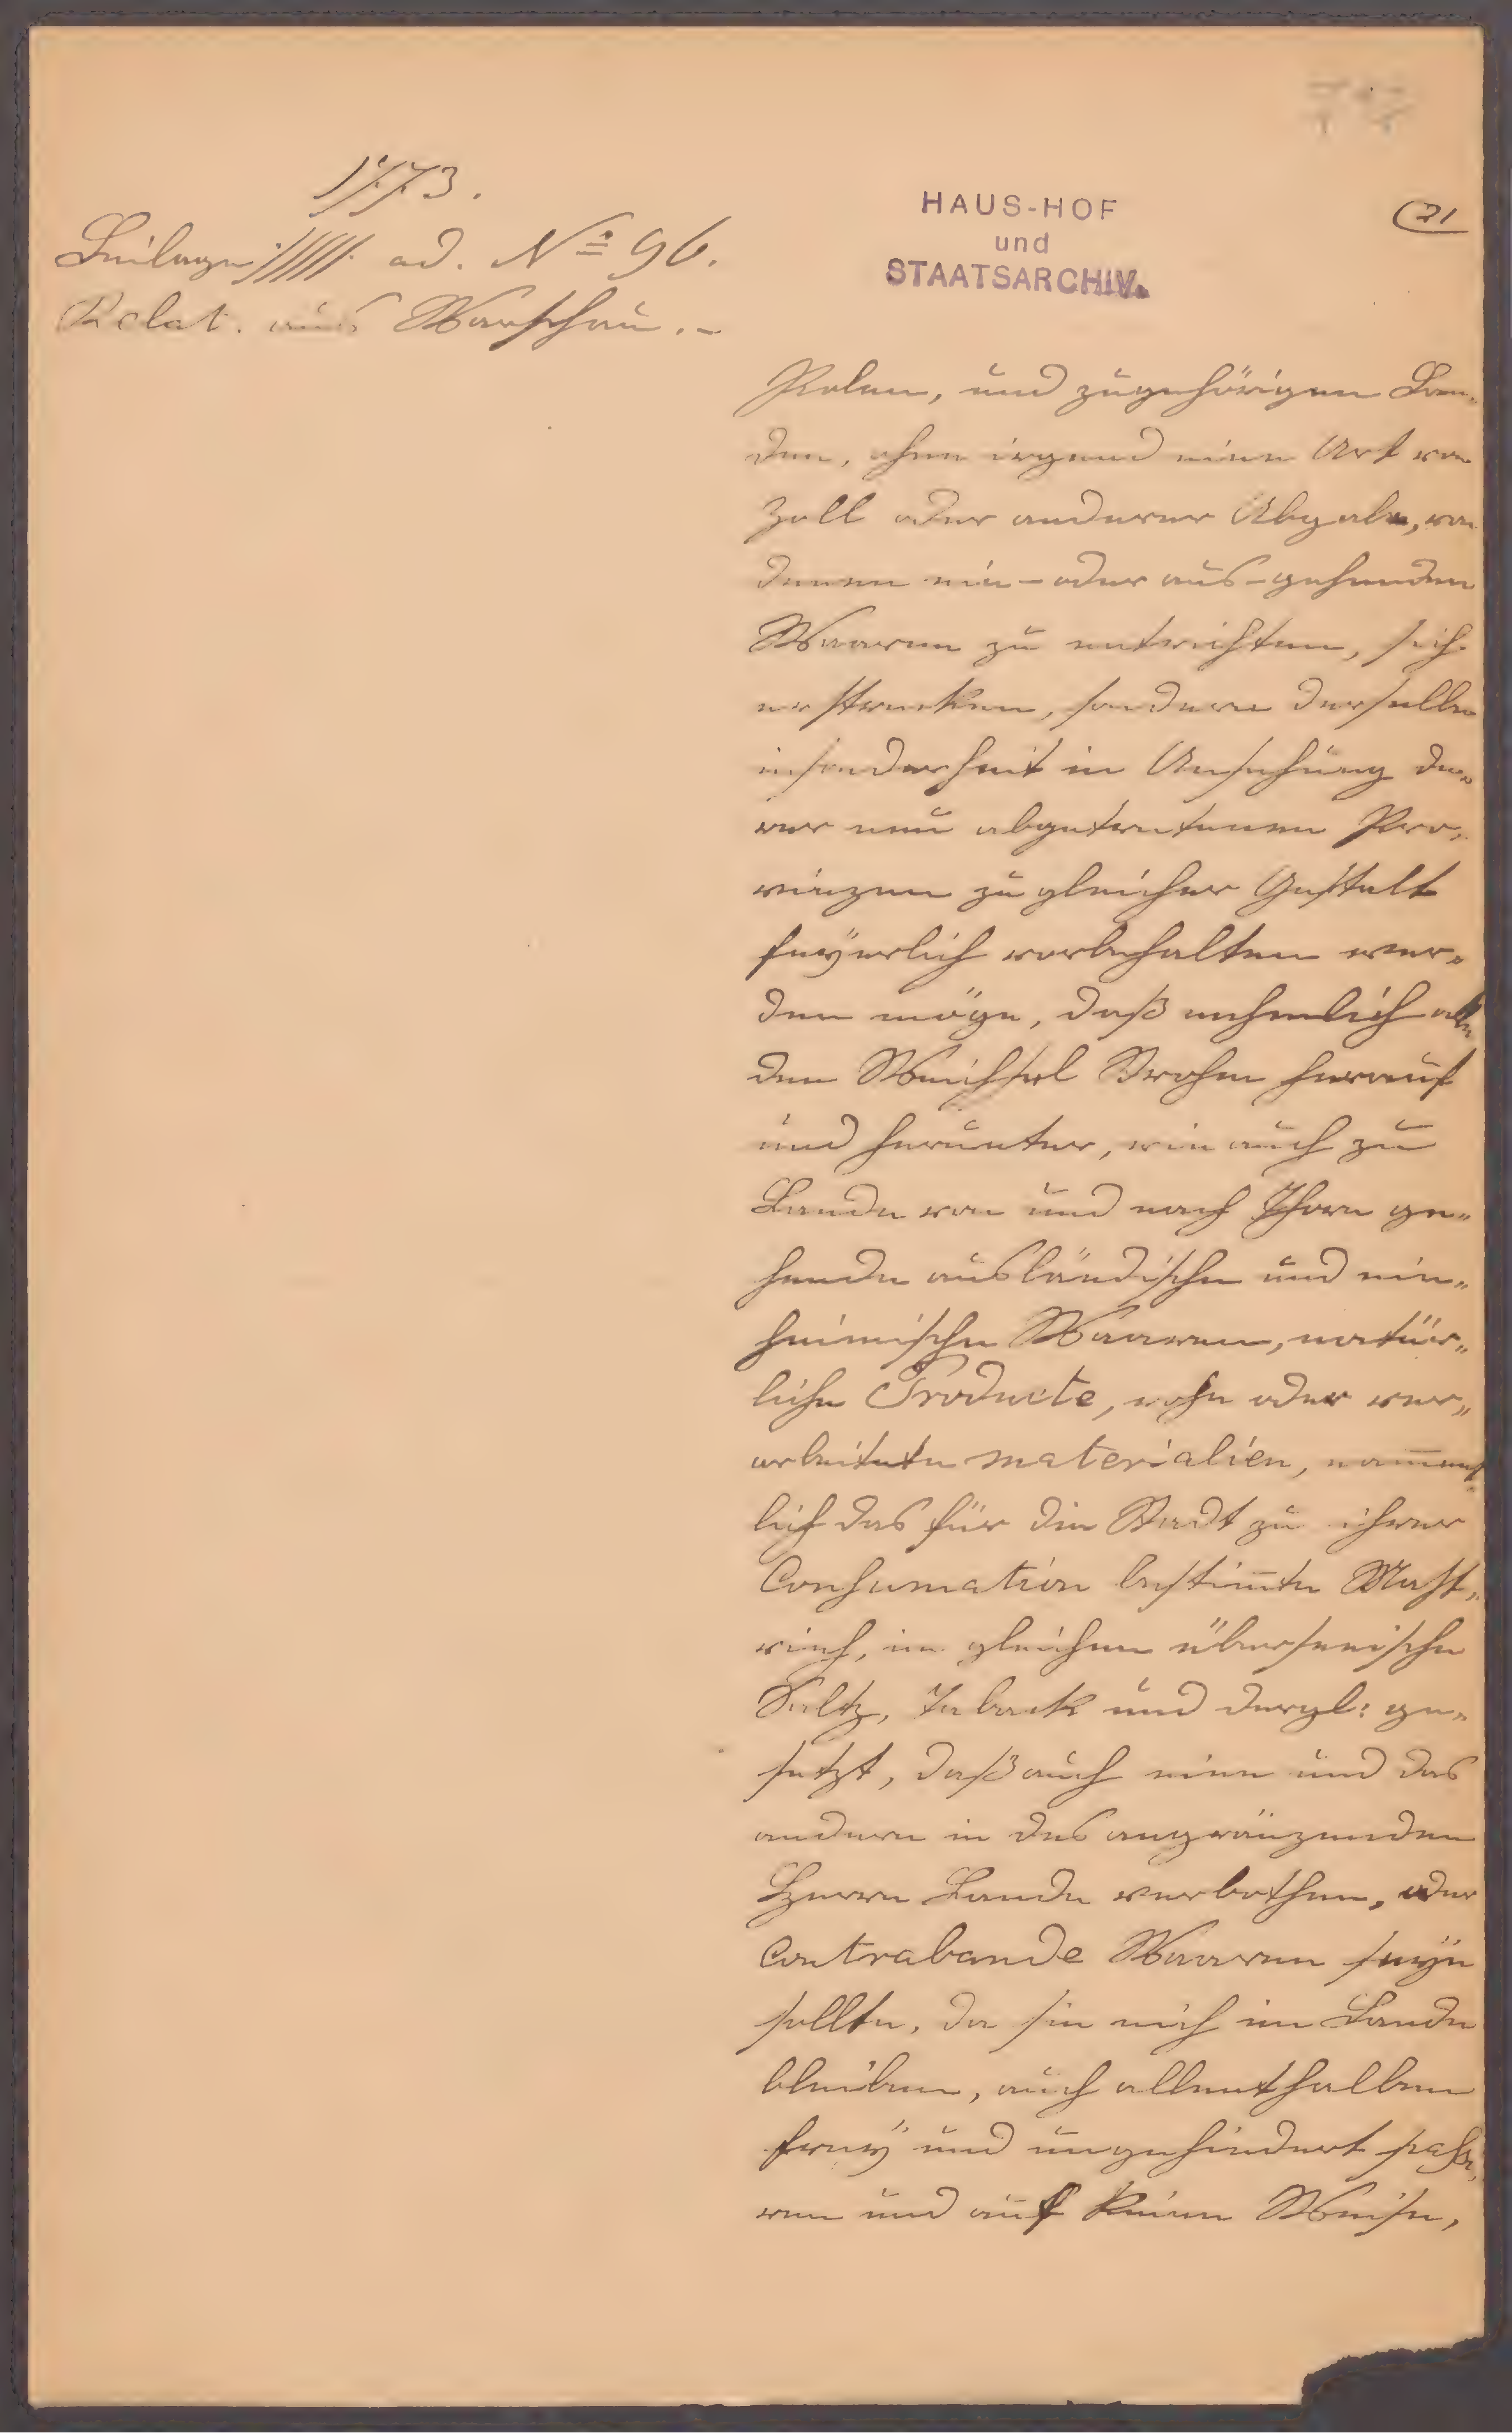 1773.
Beilage ·/////· ad. No 96.
Relat. aus Warschau.-
HAUS-HOF
und
STAATSARCHIV.
21
Polen, und zugehörigen Lan„
den, ohne irgend eine Art von
Zoll oder anderer Abgabe, von
denen ein- oder aus-gehenden
Waaren zu entrichten, sich
erstrecken, sondern derselbe
insonderheit in Ansehung de„
rer neu abgetretenen Pro„
vinzen zu gleicher Gestalt
feÿerlich vorbehalten wer„
den möge, daß nehmlich alle
den Weichsel Strohm herauf
und herunter, wie auch zu
Lande von und nach Thorn ge„
hende ausländische und ein„
heimische Waaren, natür„
liche Producte, rohe oder ver„
arbeitete materialien, nam̅ent„
lich das für die Stadt zu ihrer
Consumation bestim̅te Mast„
vieh, im gleichen überseeische
Saltz, Taback und dergl: ge„
setzt, daß auch eine und das
andere in des angränzenden
Herrn Lande verbothen, oder
Contrabande Waaren seÿn
sollte, da sie nich im Lande
bleiben, auch allenthalben
freÿ und ungehindert passi„
ren und auf keine Weise,